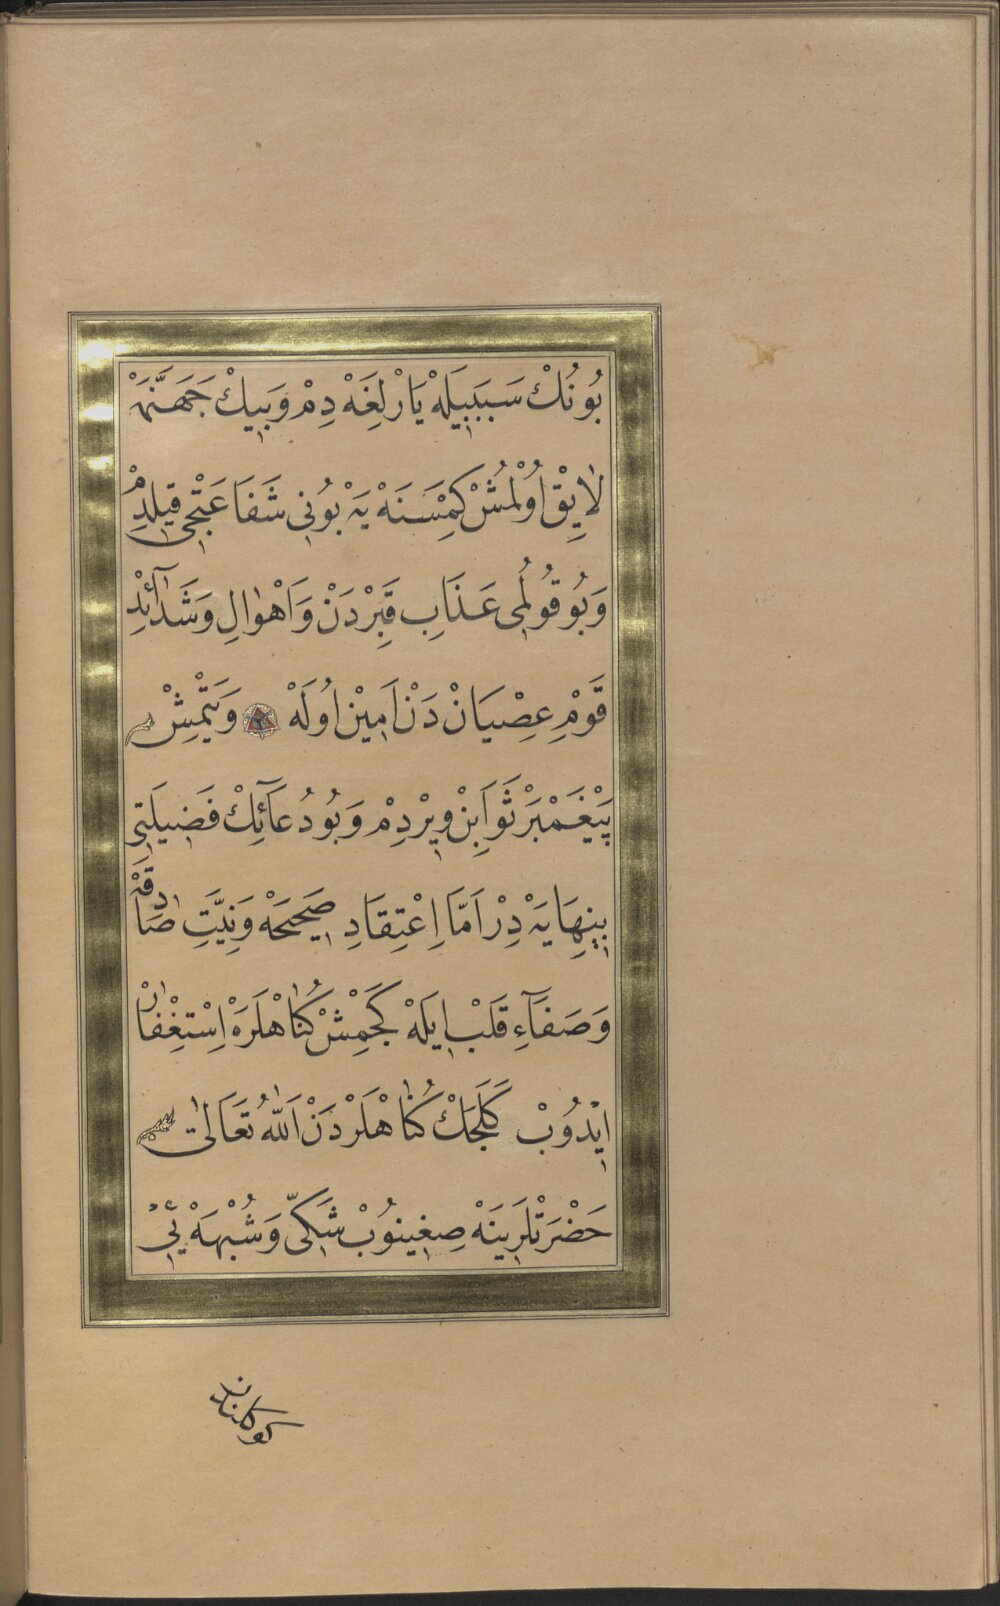 بُونُكْ سَبَبِيلَهْ يَارْلِغَهْ دِمْ وَبِيكْ جَهَنَّمَهْ
لَايِقْ اُولْمُشْ كِمْسَنَهْ يَهْ بُونِي شَفَاعَتْجِى قِيلْدِمْ
وَبُو قُولُمِى عَذَابِ قَبِرْدَنْ وَاَهْوَالِ وَشَدَآئِدْ
قَوْمِ عِصْيَانْ دَنْ اَمِينْ اُولَهْ وَيَتْمِشْ
پَيْغَمْبَرْ ثَوَابِنْ وِيرْدِمْ وَبُو دُعَآئِكْ فَضِيلَتِى
بِينِهَايَهْ دِرْ اَمَّا اِعْتِقَادِ صَحِيحَهْ وَنِيَّتِ صَادِقَهْ
وَصَفَآءِ قَلْبْ اِيلَهْ كَچْمِشْ كُنَاهْلَرَهْ اِسْتِغْفَارْ
اِيْدُوبْ كَلَجَكْ كُنَاهْلَرْدَنْ اَللّٰهُ تَعَالَى
حَضْرَتْلَرِينَهْ صِغِينُوبْ شَكِّى وَشُبْهَهْ يِى